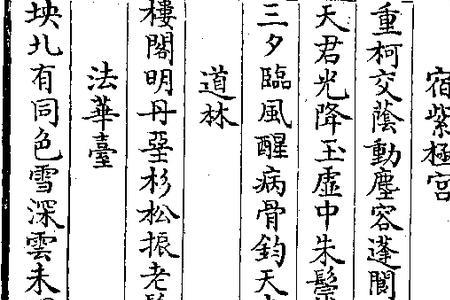 宿紫極宮
重柯交蔭動塵容蓬閬
天君光降玉虛中朱鬟
三夕臨風醒病骨鈞天
道林
樓閣明丹堊杉松振老
法華臺
坱圠有同色雪深雲未